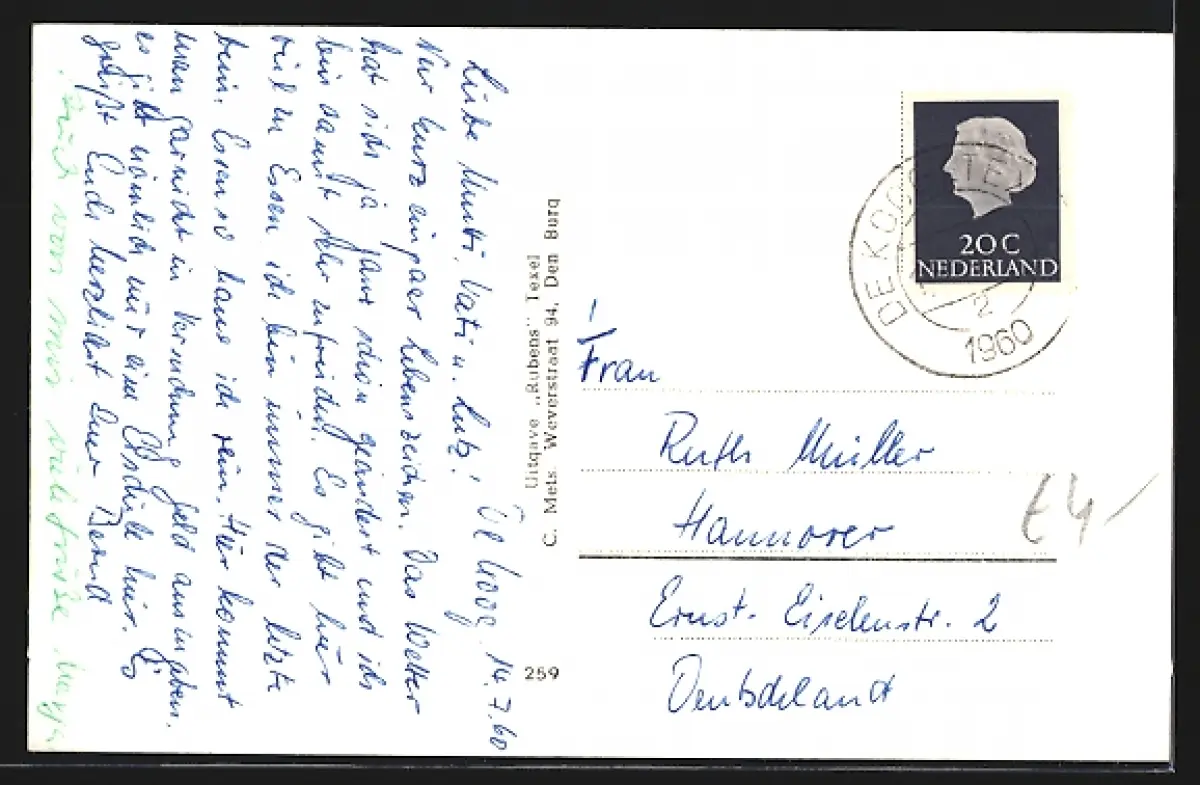 De Koog, 14.7.60
Liebe Mutti, Vati u. Lutz!
Nur kurz ein paar Lebenszeichen. Das Wetter
hat sich ja ganz schön geändert und ich
bin damit sehr zufrieden. Es gibt hier
viel zu Essen ich bin immer der letzte
beim Essen so haue ich rein. Hier kommt
man garnicht in Versuchung Geld auszugeben.
es gibt nämlich nur eine Eisdiele hier. Es
grüßt Euch herzlichst Euer Bernd
Auch von mir viele Grüße
Uitgave „Rubens" Texel
C. Mets Weverstraat 94, Den Burg
259
20 C
NEDERLAND
DE KOOG TEXEL
2
1960
Frau
Ruth Müller
Hannover
Ernst-Eiselenstr. 2
Deutschland